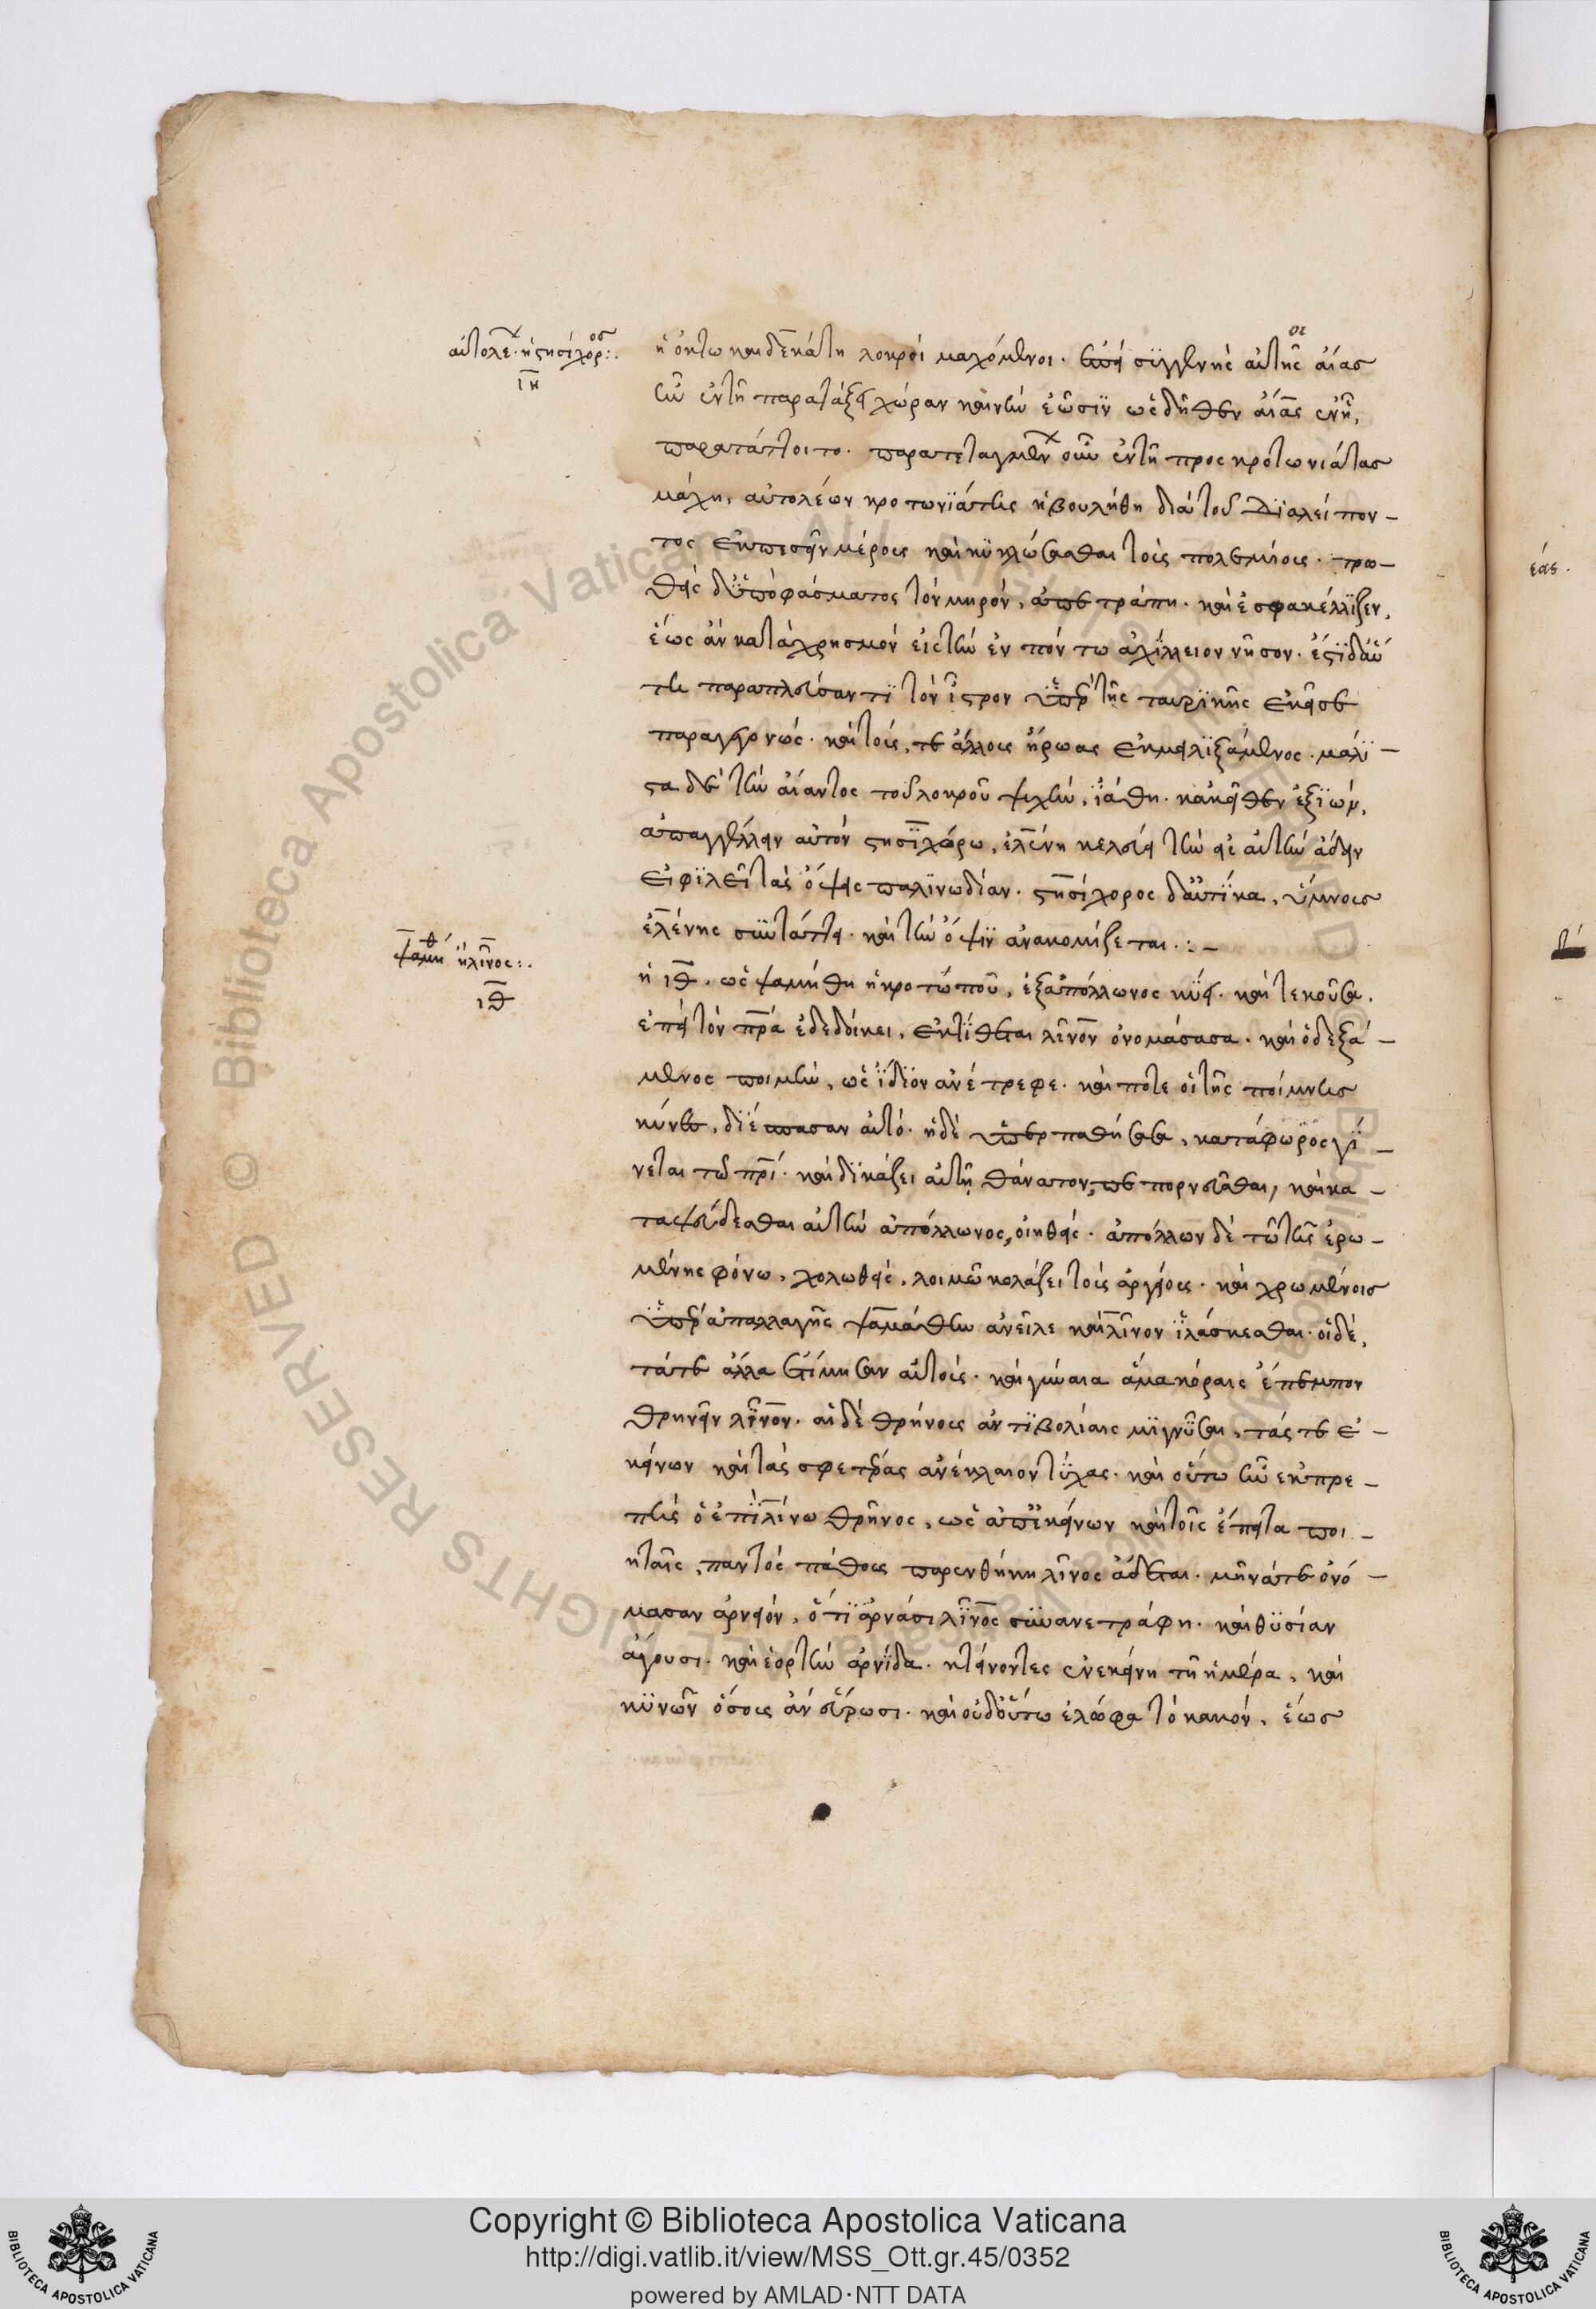 αὐτολέ· ἡ στησίχορος:.
ιη
ἡ ὀκτωκαιδεκάτη λοκροὶ μαχόμενοι· ἐπεὶ συγγενὴς αὐτοῖς αἴας
ἦν ἐν τῆ παρατάξει χώραν κενὴν ἐῶσιν ὡς δῆθεν αἴας ἐνῆ,
παρατάττοιτο. παρατεταγμένων οὖν ἐν τῆ προς κροτωνιάτας
μάχη, αὐτολέων κροτωνϊάτης ἠβουλήθη διὰ τοῦ διαλείπον-
τος εἰσπεσεῖν μέρους καὶ κυκλώσασθαι τοὺς πολεμίους. τρω-
θεὶς δ' ὑπὸ φάσματος τὸν μηρόν, ἀπετράπη. καὶ ἐσφακέλλιζεν,
ἕως ἂν κατὰ χρησμὸν εἰς τὴν ἐν πόντω ἀχίλλειον νῆσον. ἔστι δ' αὕ
τη παραπλεύσαντι τὸν ἴστρον ὑπὲρ τῆς ταυρικῆς ἐκεῖσε
παραγεγονὼς. καὶ τούς, τε ἄλλους ἥρωας ἐκμειλιξάμενος. μάλι-
στα δὲ τὴν αἴαντος τοῦ λοκροῦ ψυχήν, ϊάθη. κἀκεῖθεν ἐξιών,
ἀπαγγέλλειν αὐτὸν στησιχόρω, ἑλένη κελεύει τὴν εἰς αὐτὴν ἄδειν
εἰ φιλεῖ τὰς ὄψεις παλινωδίαν. στησίχορος δ' αὐτίκα, ὕμνους
ἑλένης συντάττει. καὶ τὴν ὄψιν ἀνακομίζεται.:-
ψαμάθη ἡ λῖνος:.
ιθ
ἡ ιθ. ὡς ψαμάθη ἡ κροτώπου, ἐξ ἀπόλλωνος κύει. καὶ τεκοῦσα.
ἐπεὶ τὸν πρα ἐδεδοίκει, ἐκτίθεται λῖνον ὀνομάσασα. καὶ ὁ δεξά-
μενος ποιμήν, ὡς ἴδιον ἀνέτρεφε. καί ποτε οἱ τῆς ποίμνης
κύνες, διέσπασαν αὐτό. ἡ δὲ ὑπερπαθήσασα, κατάφωρος γί-
νεται τῶ πρί. καὶ δικάζει αὐτῆ θάνατον, πεπορνεῦσθαι, καὶ κα-
ταψεύδεσθαι αὐτὴν ἀπόλλωνος, οἰηθείς. ἀπόλλων δὲ τῶ τῆς ἐρω-
μένης φόνω, χολωθείς, λοιμῶ κολάζει τοὺς ἀργείους. καὶ χρωμένοις
ὑπὲρ ἀπαλλαγῆς ψαμάθην ἀνεῖλε καὶ λῖνον ἱλάσκεσθαι. οἱ δὲ,
τά τε ἄλλα ἐτίμησαν αὐτούς. καὶ γύναια ἅμα κόραις ἔπεμπον
θρηνεῖν λῖνον. αἱ δὲ θρήνους ἀντιβολίαις μιγνῦσαι, τάς τε ἐ-
κείνων καὶ τὰς σφετέρας ἀνέκλαιον τύχας. καὶ οὕτω ἦν ἐκπρε-
πὴς ὁ ἐπὶ λίνω θρῆνος, ὡς ἀπ' ἐκείνων καὶ τοῖς ἔπειτα ποι-
ηταῖς, παντὸς πάθους παρενθήκη λῖνος ἄδεται. μῆνά τε ὀνό-
μασαν ἀρνεῖον, ὅτι ἀρνάσι λῖνος συνανετράφη. καὶ θυσίαν
ἄγουσι. καὶ ἑορτὴν ἀρνίδα. κτείνοντες ἐν ἐκείνη τῆ ἡμέρα, καὶ
κυνῶν ὅσους ἂν εὕρωσι. καὶ οὐδ' οὕτω ἐλώφα τὸ κακόν, ἕως
έας.
Copyright © Biblioteca Apostolica Vaticana
http://digi.vatlib.it/view/MSS_Ott.gr.45/0352
powered by AMLAD·NTT DATA